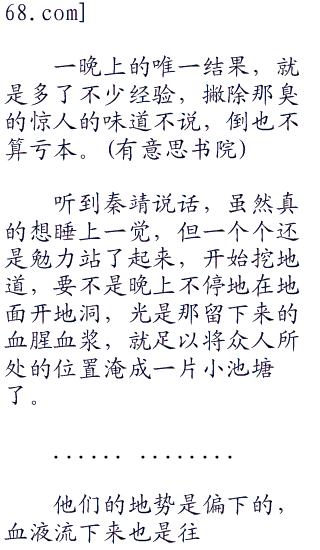 68.com]
一晚上的唯一结果，就
是多了不少经验，撇除那臭
的惊人的味道不说，倒也不
算亏本。(有意思书院)
听到秦靖说话，虽然真
的想睡上一觉，但一个个还
是勉力站了起来，开始挖地
道，要不是晚上不停地在地
面开地洞，光是那留下来的
血腥血浆，就足以将众人所
处的位置淹成一片小池塘
了。
...... ........
他们的地势是偏下的，
血液流下来也是往